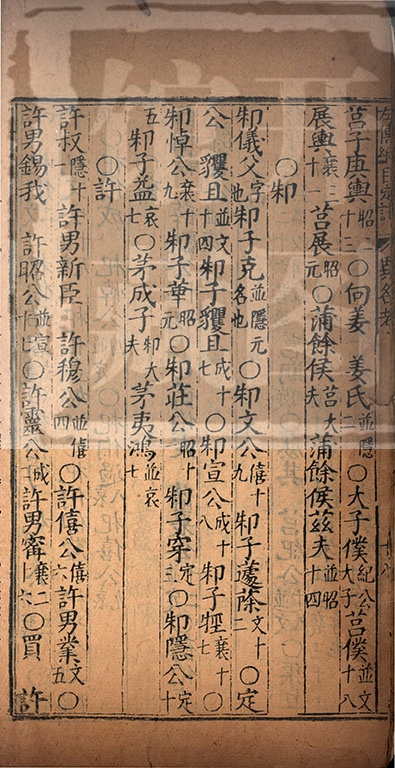 莒子庚輿昭十三〇向姜 姜氏並隱二〇大子僕紀公大子莒僕並文十八
展輿襄三十一莒展昭元〇蒲餘侯莒大夫蒲餘侯茲夫並昭十四
〇邾
邾儀父字也邾子克名也並隱元〇邾文公僖十九邾子蘧蒢文十二〇定
公 貜且並文十四邾子貜且成十七〇邾宣公成十八邾子牼襄十七〇
邾悼公襄十九邾子華昭元〇邾莊公昭十一邾子穿定三〇邾隱公定十
五邾子益哀七〇茅成子邾大夫 茅夷鴻並哀七
〇許
許叔隱十一 許男新臣 許穆公並僖四〇許僖公僖六許男業文五〇
許男錫我 許昭公並宣十七〇許靈公成 許男甯襄二十六〇買 許